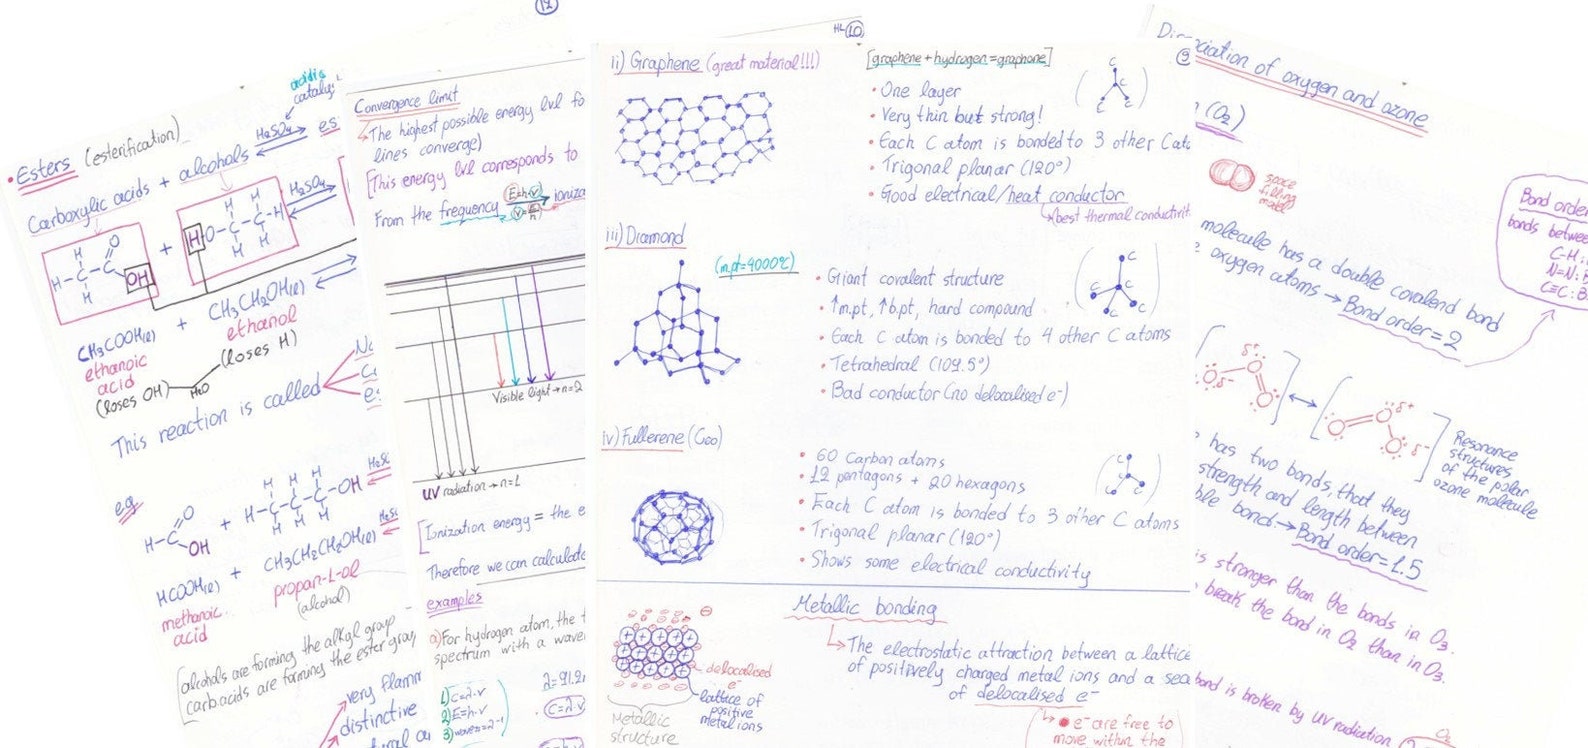 12
acidic
cataly
• Esters (esterification)
Carboxylic acids + alcohols H₂SO₄ es
H₂SO₄
H-C-C O OH + H O-C-C-H
H H H H H H
CH₃COOH(l) + CH₃CH₂OH(l)
ethanoic acid
ethanol
(loses OH) H₂O (loses H)
This reaction is called
e.g.
H-C O OH + H-C-C-C-OH H₂S
HCOOH(l) + CH₃CH₂CH₂OH(l) H₂S
methanoic acid
propan-1-ol
(alcohol)
[alcohols are forming the alkyl group
carb.acids are forming the ester group
very flamm
distinctive
HL 10
Convergence limit
↳The highest possible energy lvl fo
lines converge)
[This energy lvl corresponds to
From the frequency E=h·v ioniza
Visible light → n=2
UV radiation → n=1
[Ionization energy = the e
Therefore we can calculate
examples
a) For hydrogen atom, the
spectrum with a wave
1) C=λ·v
2) E=h·v
C=λ·v
9
ii) Graphene (great material!!!)
[graphene + hydrogen = graphane]
• One layer
• Very thin but strong!
• Each C atom is bonded to 3 other C ato
• Trigonal planar (120°)
• Good electrical/heat conductor
↳(best thermal conductivit
C
C C
iii) Diamond
(m.pt=4000°C)
• Giant covalent structure
• ↑m.pt, ↑b.pt, hard compound
• Each C atom is bonded to 4 other C atoms
• Tetrahedral (109.5°)
• Bad conductor (no delocalised e⁻)
C
C C C
C
iv) Fullerene (C₆₀)
• 60 Carbon atoms
• 12 pentagons + 20 hexagons
• Each C atom is bonded to 3 other C atoms
• Trigonal planar (120°)
• Shows some electrical conductivity
C
C C
Metallic bonding
↳The electrostatic attraction between a lattice
of positively charged metal ions and a sea
of delocalised e⁻
delocalised
e⁻
lattice of
positive
metal ions
Metallic
structure
(↳ • e⁻ are free to
move within the
Dissociation of oxygen and ozone
(O₂)
space
filling
model
Bond order
bonds betwee
C-H:
N=N:
C≡C:
molecule has a double covalend bond
oxygen atoms → Bond order = 2
δ+
δ-
δ+
δ-
Resonance
structures
of the polar
ozone molecule
has two bonds, that they
strength and length between
ble bond. → Bond order = 1.5
is stronger than the bonds in O₃.
break the bond in O₂ than in O₃.
bond is broken by UV radiation
O₂